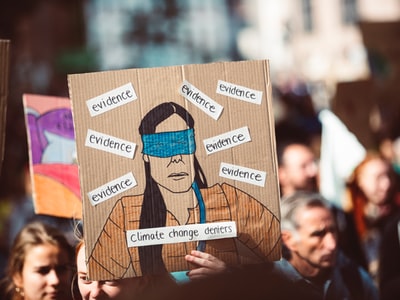 evidence
evidence
evidence
evidence
evidence
evidence
evidence
Climate change deniers